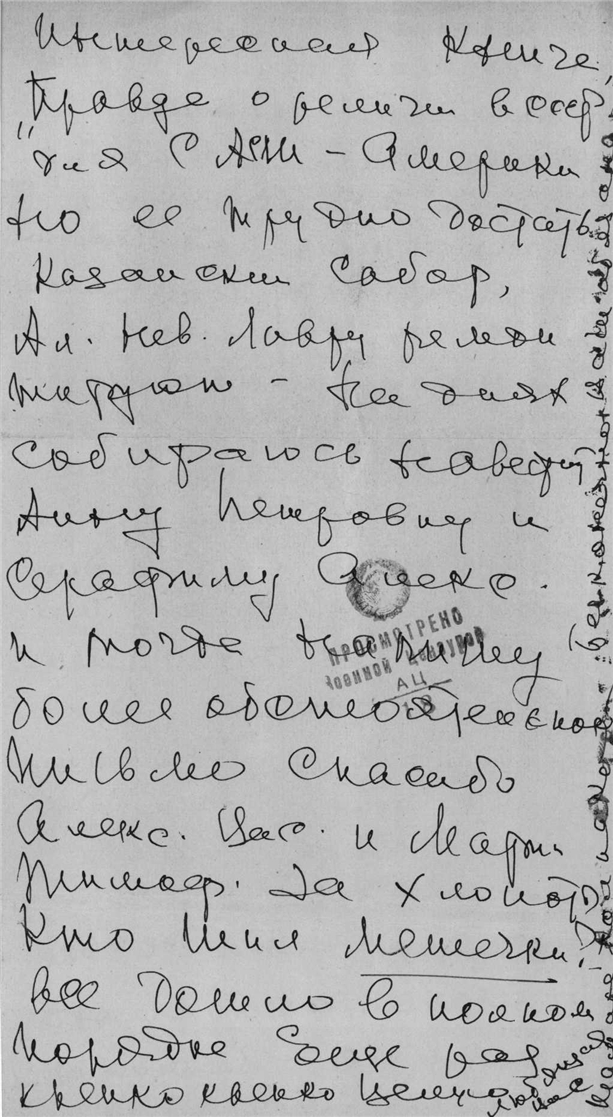 Интересная книга
"Правда о религии в СССР
для САСШ - Америки
но ее трудно достать
Казански Собор,
Ал. Нев. Лавру ремон
тируют - На днях
собираюсь навестить
Анну Петровну и
Серафиму Алекс.
и тогда напишу
более обстоятельное
письмо Спасибо
Алекс. Вас. и Марии
Тимоф. за хлопоты
Кто шил мешечки?
все дошло в полном
порядке Еще раз
крепко крепко целую
любящая
вас
ПРОСМОТРЕНО
Военной Цензурой